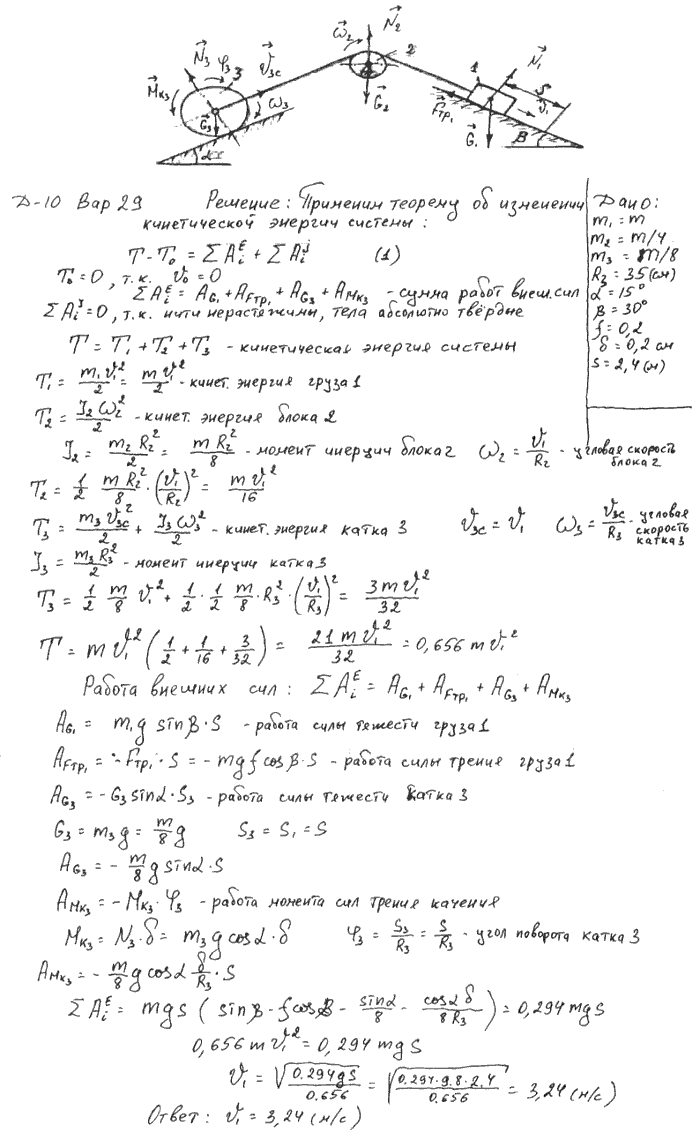 N₃ φ₃ 3 v₃c
Mк₃ G₃ ω₃ α
ω₂ N₂ 2
G₂
1 N₁ S v₁
Fтр₁ G₁ β
Д-10 Вар 29 Решение: Применим теорему об изменении
кинетической энергии системы:
T - T₀ = ΣAᵢᴱ + ΣAᵢʲ (1)
T₀ = 0, т.к. v₀ = 0
ΣAᵢᴱ = A_G₁ + A_Fтр₁ + A_G₃ + A_Mк₃ - сумма работ внеш. сил
ΣAᵢʲ = 0, т.к. нити нерастяжимы, тела абсолютно твёрдые
T = T₁ + T₂ + T₃ - кинетическая энергия системы
T₁ = m₁v₁²/2 = mv₁²/2 - кинет. энергия груза 1
T₂ = J₂ω₂²/2 - кинет. энергия блока 2
J₂ = m₂R₂²/2 = mR₂²/8 - момент инерции блока 2 ω₂ = v₁/R₂ - угловая скорость блока 2
T₂ = 1/2 mR₂²/8 · (v₁/R₂)² = mv₁²/16
T₃ = m₃v₃c²/2 + J₃ω₃²/2 - кинет. энергия катка 3 v₃c = v₁ ω₃ = v₃c/R₃ - угловая скорость катка 3
J₃ = m₃R₃²/2 - момент инерции катка 3
T₃ = 1/2 m/8 v₁² + 1/2 · 1/2 m/8 · R₃² · (v₁/R₃)² = 3mv₁²/32
T = mv₁² (1/2 + 1/16 + 3/32) = 21mv₁²/32 = 0,656 mv₁²
Работа внешних сил: ΣAᵢᴱ = A_G₁ + A_Fтр₁ + A_G₃ + A_Mк₃
A_G₁ = m₁g sinβ·S - работа силы тяжести груза 1
A_Fтр₁ = -Fтр₁·S = -mgf cosβ·S - работа силы трения груза 1
A_G₃ = -G₃ sinα·S₃ - работа силы тяжести катка 3
G₃ = m₃g = m/8 g S₃ = S₁ = S
A_G₃ = - m/8 g sinα·S
A_Mк₃ = -Mк₃·φ₃ - работа момента сил трения качения
Mк₃ = N₃·δ = m₃g cosα·δ φ₃ = S₃/R₃ = S/R₃ - угол поворота катка 3
A_Mк₃ = - m/8 g cosα δ/R₃·S
ΣAᵢᴱ = mgs (sinβ - fcosβ - sinα/8 - cosα δ/8R₃) = 0,294 mgS
0,656 mv₁² = 0,294 mgS
v₁ = √(0.294gS/0.656) = √(0,294·9.8·2,4/0.656) = 3,24 (м/с)
Ответ: v₁ = 3,24 (м/с)
Дано:
m₁ = m
m₂ = m/4
m₃ = m/8
R₃ = 35 (см)
α = 15°
β = 30°
f = 0,2
δ = 0,2 см
S = 2,4 (м)